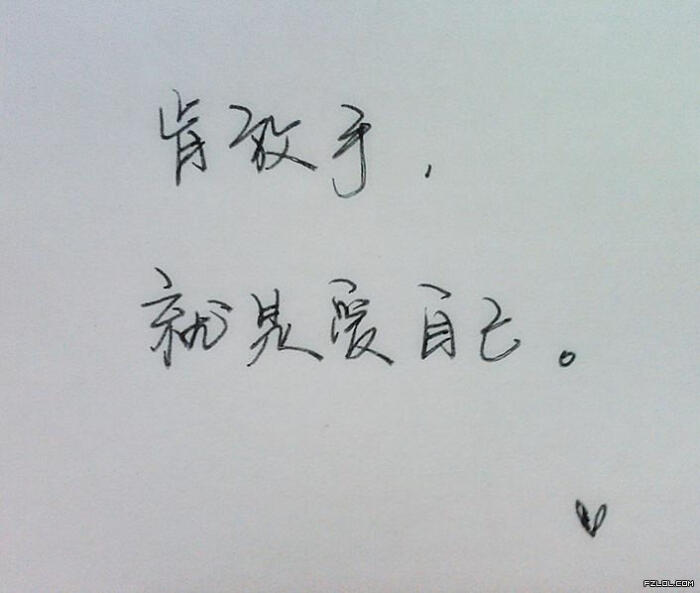 肯放手，
就是爱自己。
FZLOL.COM